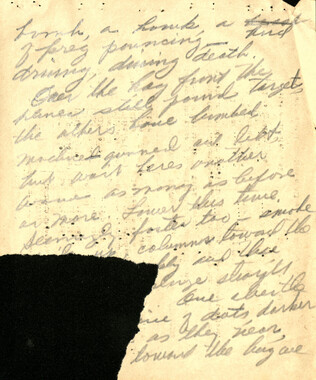 bomb, a bomb, a
of prey pouncing, and
driving, daring death.
Over the bay front the
planes still pound targets
the others have bombed
machine gunned and left
but wait heres another
wave as many as before
or more. Lower this time,
Seemingly faster too - smoke
columns toward the
and these
straight
One after the
line of dots darker
as they near,
toward the big one